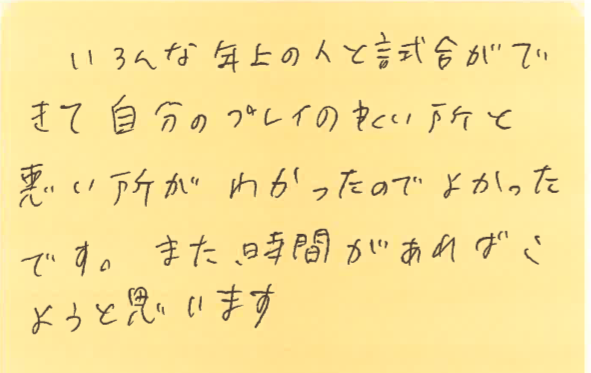 いろんな年上の人と試合がで
きて自分のプレイの良い所と
悪い所がわかったのでよかった
です。また、時間があればこ
ようと思います